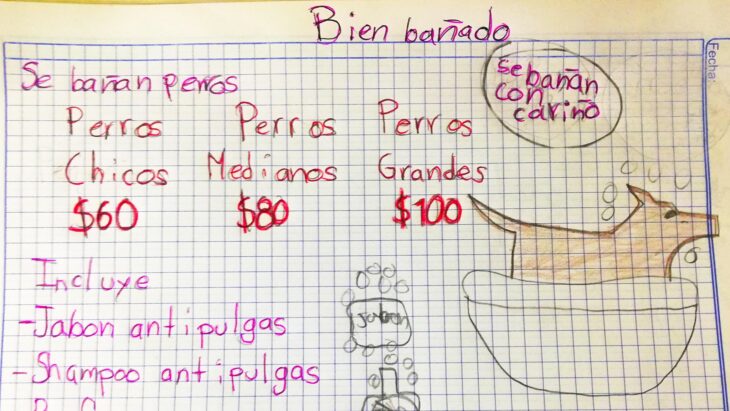 Bien bañado
Fecha:
Se bañan perros
se bañan
con
cariño
Perros Perros Perros
Chicos Medianos Grandes
$60 $80 $100
Incluye
-Jabon antipulgas
Jabon
-Shampoo antipulgas